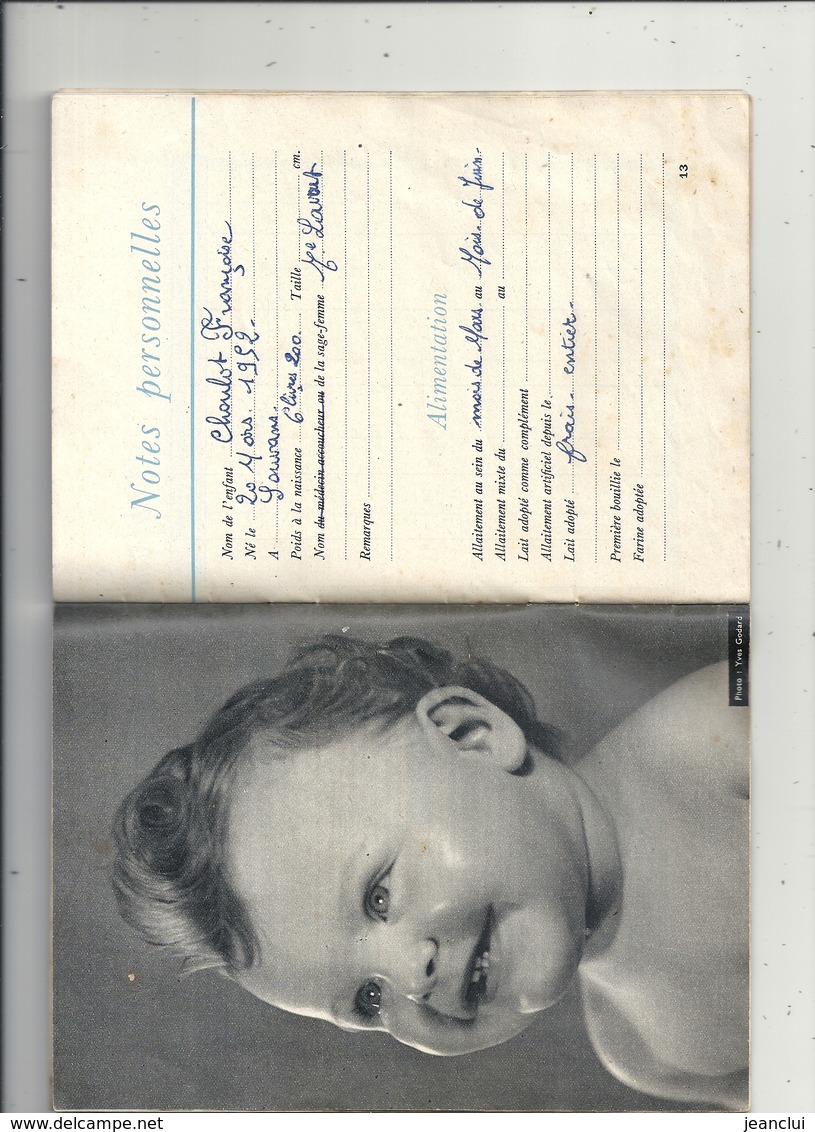 Notes personnelles
Nom de l'enfant Choulot Françoise
Né le 20 Mars. 1952.
A Louvans.
Poids à la naissance 6 livres 200. Taille cm.
Nom du médecin accoucheur ou de la sage-femme Me Lavaut
Remarques
Alimentation
Allaitement au sein du mois de Mars. au Mois. de Juin.
Allaitement mixte du au
Lait adopté comme complément
Allaitement artificiel depuis le
Lait adopté frais. entier.
Première bouillie le
Farine adoptée
13
Photo : Yves Godard
www.delcampe.net
jeanclui